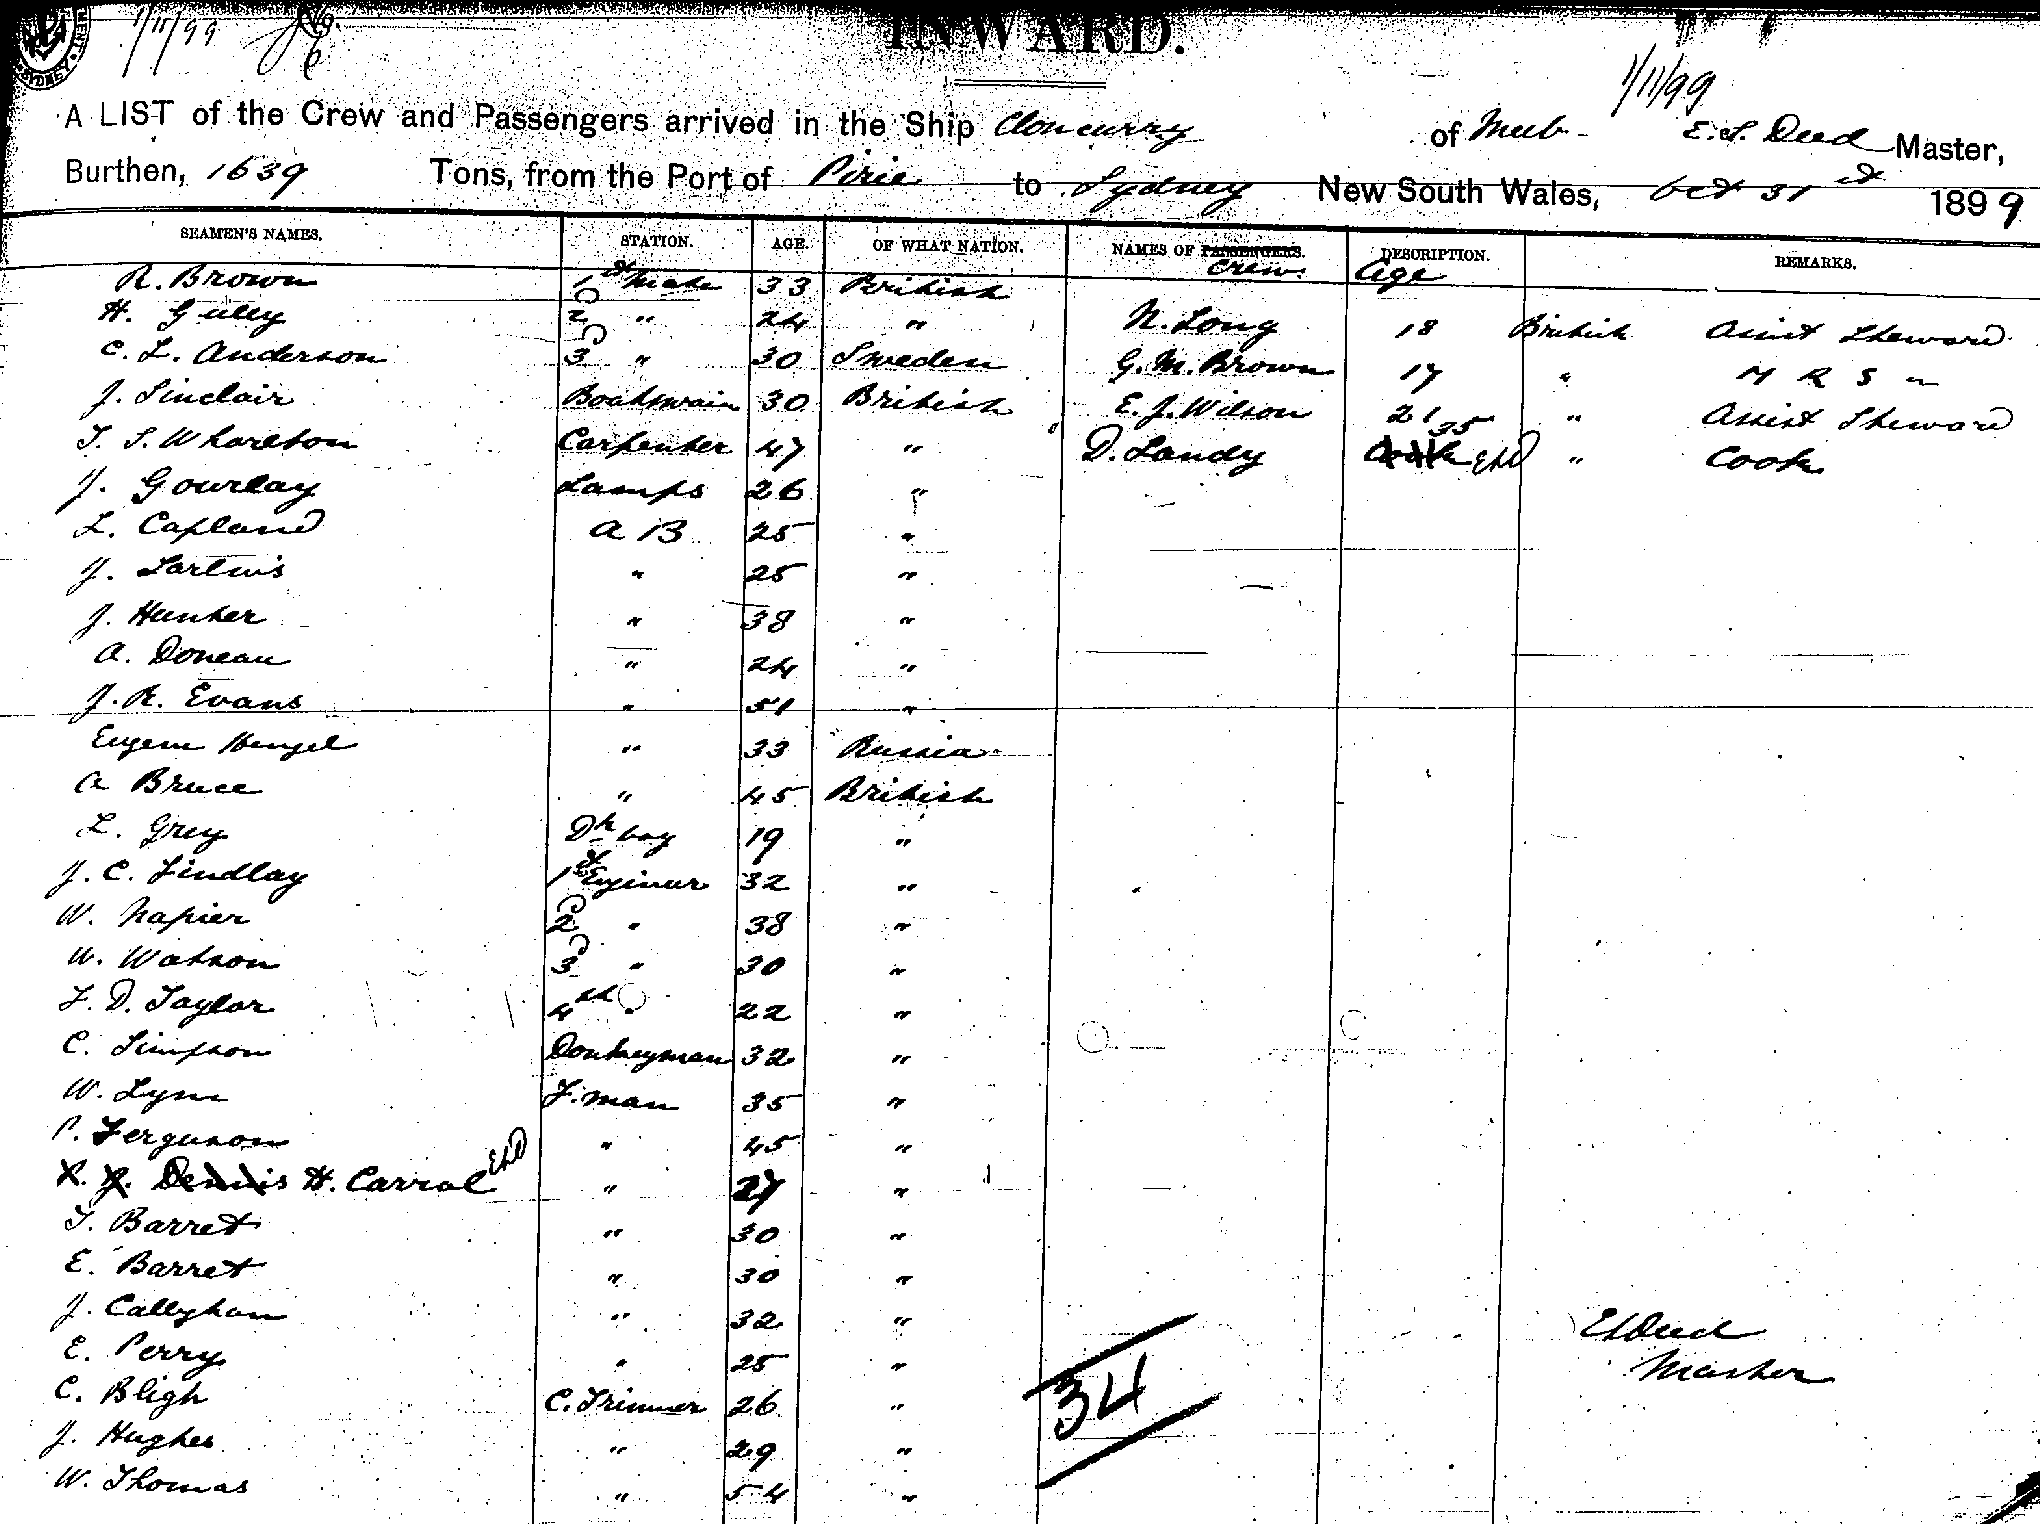 1/11/99
No. 6
INWARD.
1/11/99
A LIST of the Crew and Passengers arrived in the Ship Cloncurry of Melb- E. S. Deed Master,
Burthen, 1639 Tons, from the Port of Pirie to Sydney New South Wales, Oct 31st 1899
SEAMEN'S NAMES. STATION. AGE. OF WHAT NATION. NAMES OF PASSENGERS. Crew. DESCRIPTION. Age REMARKS.
R. Brown 1st Mate 33 British
H. Gulley 2d " 24 " N. Long 18 British Assist Steward
C. L. Anderson 3d " 30 Sweden G. M. Brown 17 " M R S "
J. Sinclair Boatswain 30 British E. J. Wilson 21 " Assist Steward
T. S. Wharlton Carpenter 47 " D. Landy Cook 35 ESD " Cook
J. Gourlay Lamps 26 "
L. Capland A B 25 "
J. " 25 "
J. Hunter " 38 "
A. Doneau " 24 "
J. R. Evans " 51 "
Eugene Hengel " 33 Russia
A Bruce " 45 British
L. Grey Dk boy 19 "
J. C. Findlay 1st Engineer 32 "
W. Napier 2d " 38 "
W. Watson 3d " 30 "
F. D. Taylor 4th " 22 "
C. Simpson Donkeyman 32 "
W. Lynn F. man 35 "
P. Ferguson " 45 "
J. Dennis H. Carrol ESD " 27 "
T. Barret " 30 "
E. Barret " 30 "
J. Callyhan " 32 "
E. Perry " 25 "
C. Bligh C. Trimmer 26 "
J. Hughes " 29 "
W. Thomas " 54 "
34
ESDeed
Master